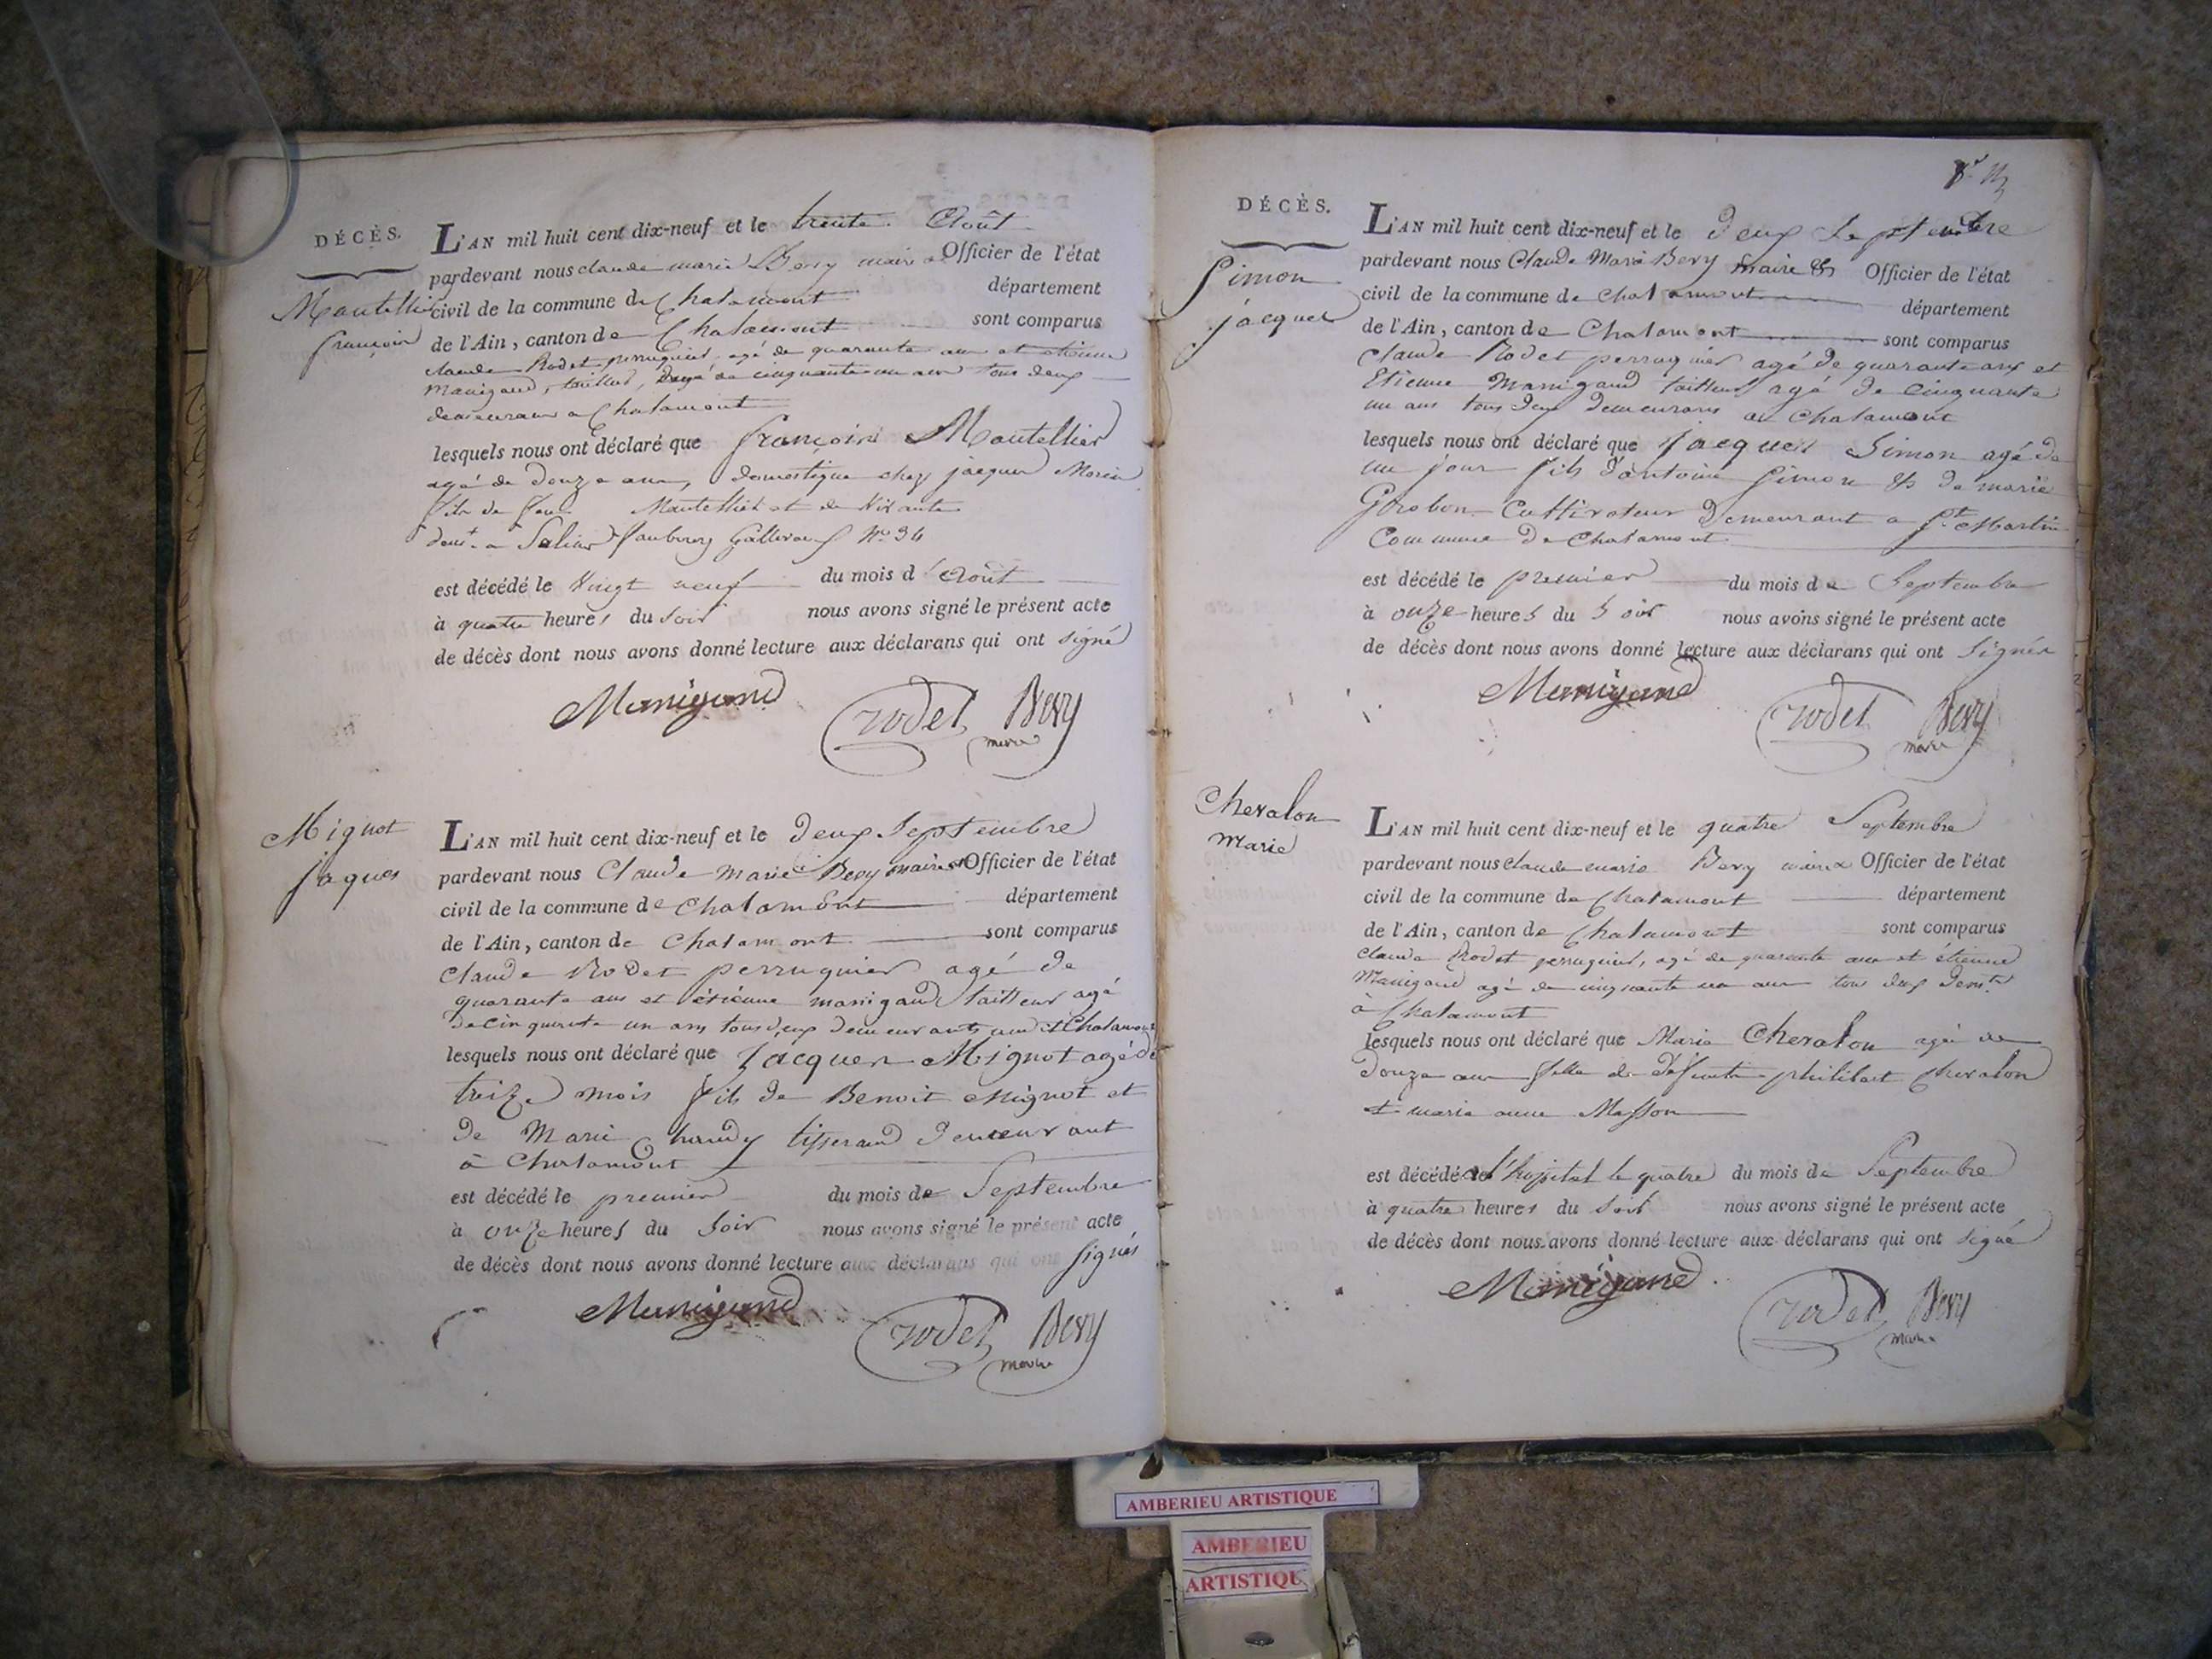 DÉCÈS.
Mantellier
françois
L'AN mil huit cent dix-neuf et le trente Août
pardevant nous claude marie Bevy maire et Officier de l'état
civil de la commune de Chatamont département
de l'Ain, canton de Chatamont sont comparus
claude Rodet perruquier, agé de quarante ans et etienne
Manigand, tailleur, agé de cinquante un ans tous deux
demeurans a Chatamont
lesquels nous ont déclaré que françois Mantellier
agé de douze ans, domestique chez jacques Morin
fils de feu Mantellier et de
demt. a faubourg No 34
est décédé le vingt neuf du mois d'Août
à quatre heures du soir nous avons signé le présent acte
de décès dont nous avons donné lecture aux déclarans qui ont signé
Manigand rodet Bevy
maire
Mignot
jaques
L'AN mil huit cent dix-neuf et le deux Septembre
pardevant nous Claude Marie Bevy maire et Officier de l'état
civil de la commune de Chatamont département
de l'Ain, canton de Chatamont sont comparus
Claude Rodet perruquier agé de
quarante ans et étienne manigand tailleur agé
de cinquante un ans tous deux demeurants audit Chatamont
lesquels nous ont déclaré que Jacques Mignot agé de
treize mois fils de Benoit Mignot et
de Marie tisserand demeurant
à Chatamont
est décédé le premier du mois de Septembre
à onze heures du Soir nous avons signé le présent acte
de décès dont nous avons donné lecture aux déclarans qui ont signés
Manigand rodet Bevy
maire
DÉCÈS.
Simon
jacques
L'AN mil huit cent dix-neuf et le deux Septembre
pardevant nous Claude Marie Bevy maire & Officier de l'état
civil de la commune de Chatamont département
de l'Ain, canton de Chatamont sont comparus
Claude Rodet perruquier agé de quarante ans et
Etienne Manigand tailleur agé de Cinquante
un ans tous deux demeurans au Chatamont
lesquels nous ont déclaré que Jacques Simon agé de
un jour fils d'antoine Simon & de marie
Grobon Cultivateur Demeurant a St Martin
Commune de Chatamont
est décédé le premier du mois de Septembre
à onze heures du Soir nous avons signé le présent acte
de décès dont nous avons donné lecture aux déclarans qui ont Signés
Manigand rodet Bevy
maire
Chevalon
Marie
L'AN mil huit cent dix-neuf et le quatre Septembre
pardevant nous claude marie Bevy maire Officier de l'état
civil de la commune de Chatamont département
de l'Ain, canton de Chatamont sont comparus
claude Rodet perruquier, agé de quarante ans et étienne
Manigand agé de cinquante un ans tous deux demts
à Chatamont
lesquels nous ont déclaré que Marie Chevalon agée de
douze ans fille de défunt philibert Chevalon
et marie anne Masson
est décédé à l'hopital le quatre du mois de Septembre
à quatre heures du soir nous avons signé le présent acte
de décès dont nous avons donné lecture aux déclarans qui ont signé
Manigand rodet Bevy
maire
AMBERIEU ARTISTIQUE
AMBERIEU
ARTISTIQU